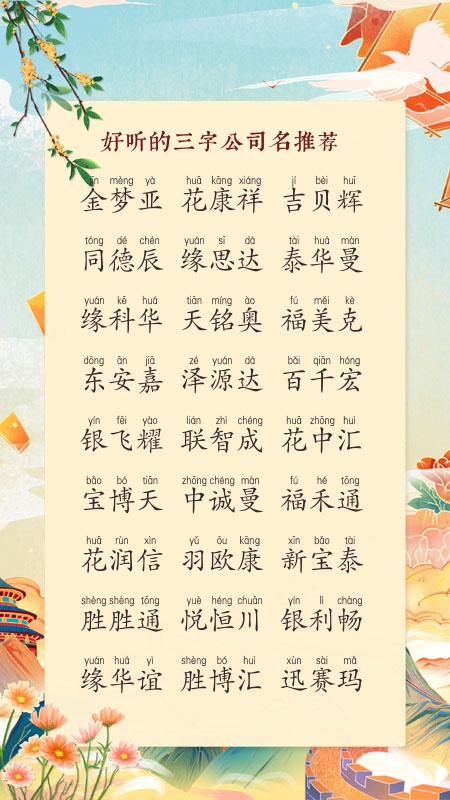 好听的三字公司名推荐
jīn mèng yà huā kāng xiáng jí bèi huī
金梦亚 花康祥 吉贝辉
tóng dé chén yuán sī dá tài huá màn
同德辰 缘思达 泰华曼
yuán kē huá tiān míng ào fú měi kè
缘科华 天铭奥 福美克
dōng ān jiā zé yuán dá bǎi qiān hóng
东安嘉 泽源达 百千宏
yín fēi yào lián zhì chéng huā zhōng huì
银飞耀 联智成 花中汇
bǎo bó tiān zhōng chéng màn fú hé tōng
宝博天 中诚曼 福禾通
huā rùn xìn yǔ ōu kāng xīn bǎo tài
花润信 羽欧康 新宝泰
shèng shèng tōng yuè héng chuān yín lì chàng
胜胜通 悦恒川 银利畅
yuán huá yì shèng bó huì xùn sài mǎ
缘华谊 胜博汇 迅赛玛